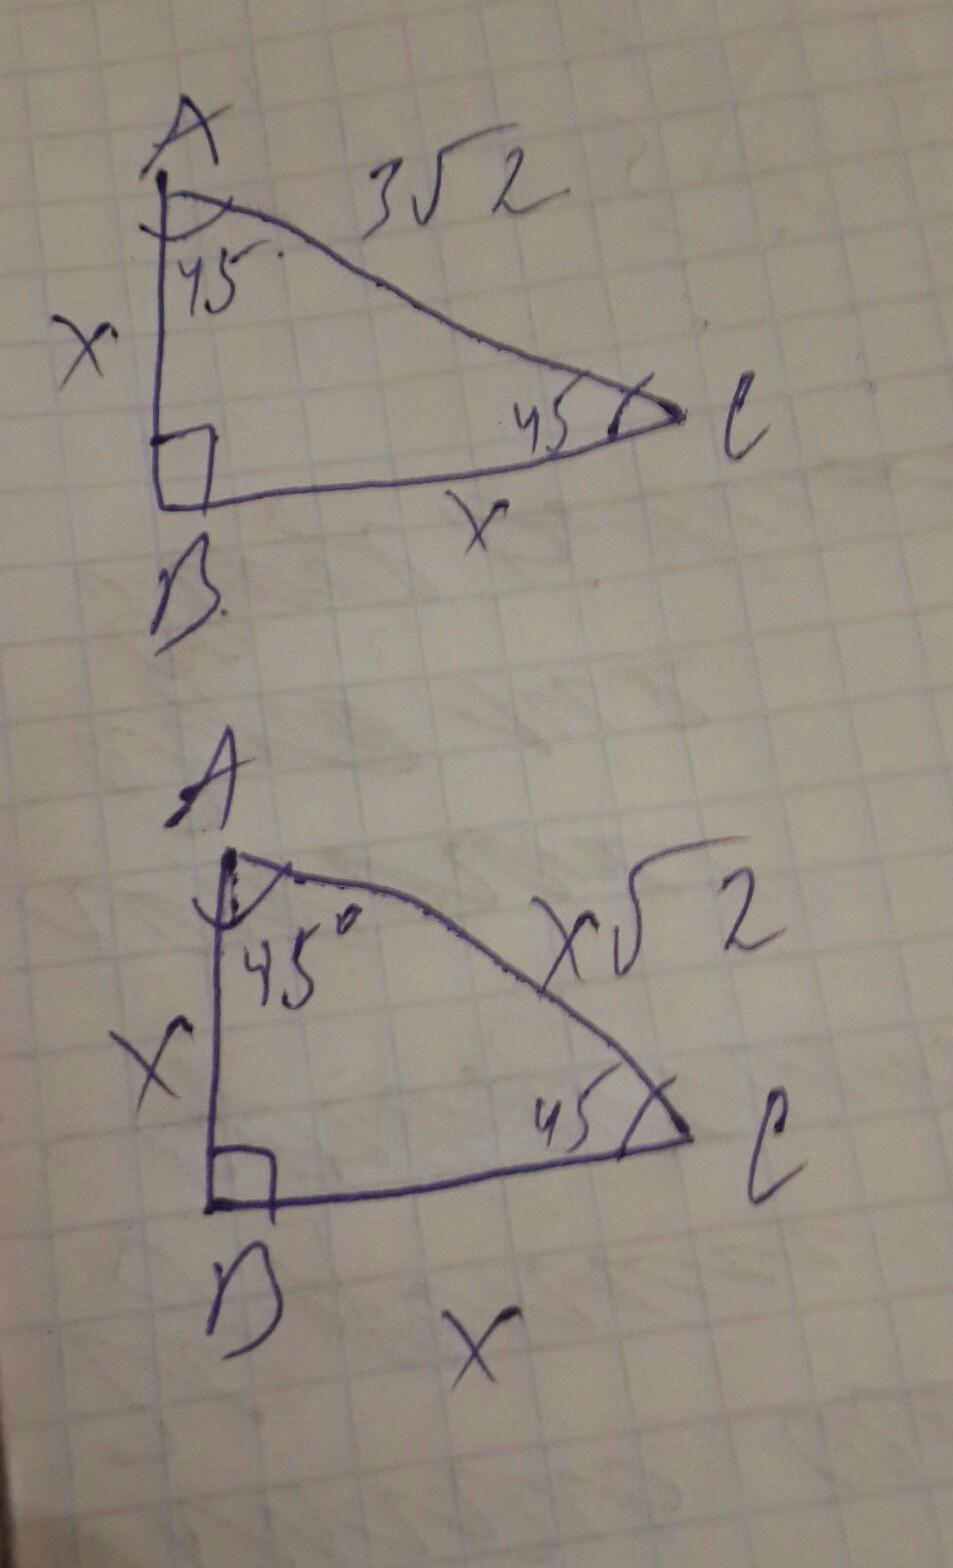 A
3√2
45°
x
45
C
x
B
A
x√2
45°
x
45
C
B
x